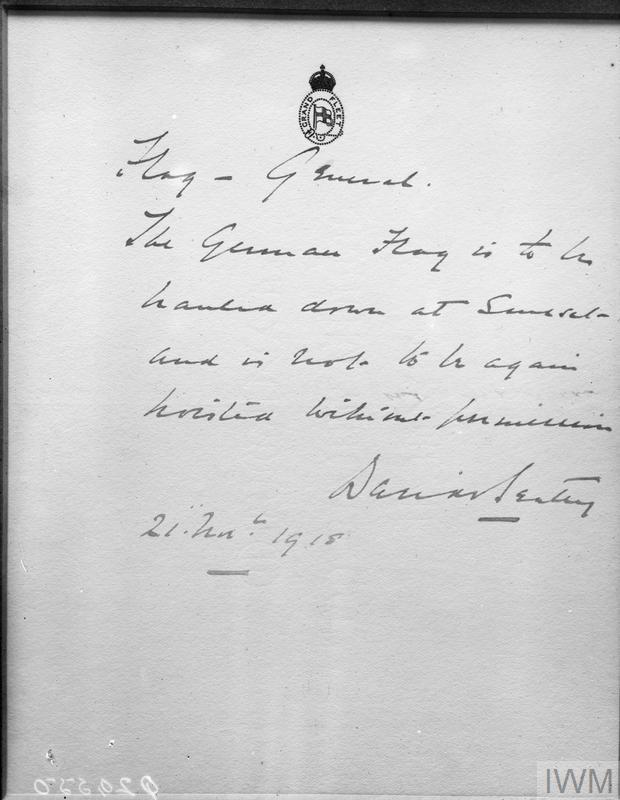 GRAND FLEET
Flag – General.
The German Flag is to be
hauled down at Sunset
and is not to be again
hoisted without permission
David Beatty
21. Novr 1918
Q 20550
IWM